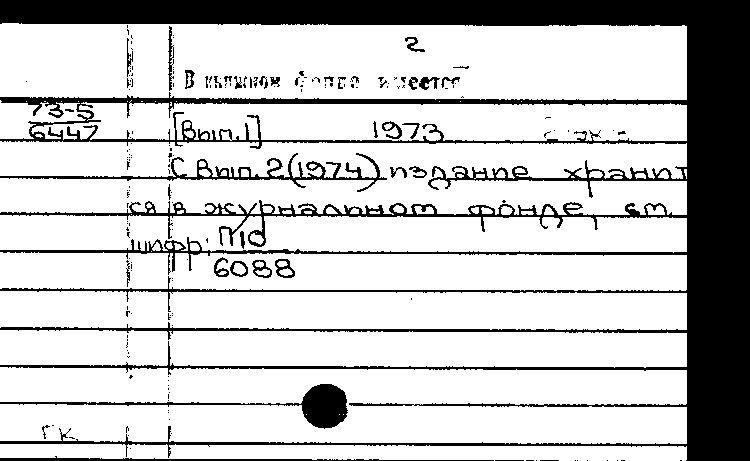 2
В книжном фонде имеется
73-5
6447
[Вып.1] 1973 2 экз
С Вып. 2 (1974) издание хранит
ся в журнальном фонде, см.
шифр: П10
6088
ГК